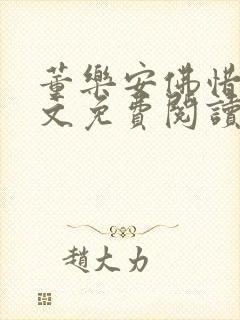 董樂安佛惜
文免費閱讀
趙大力